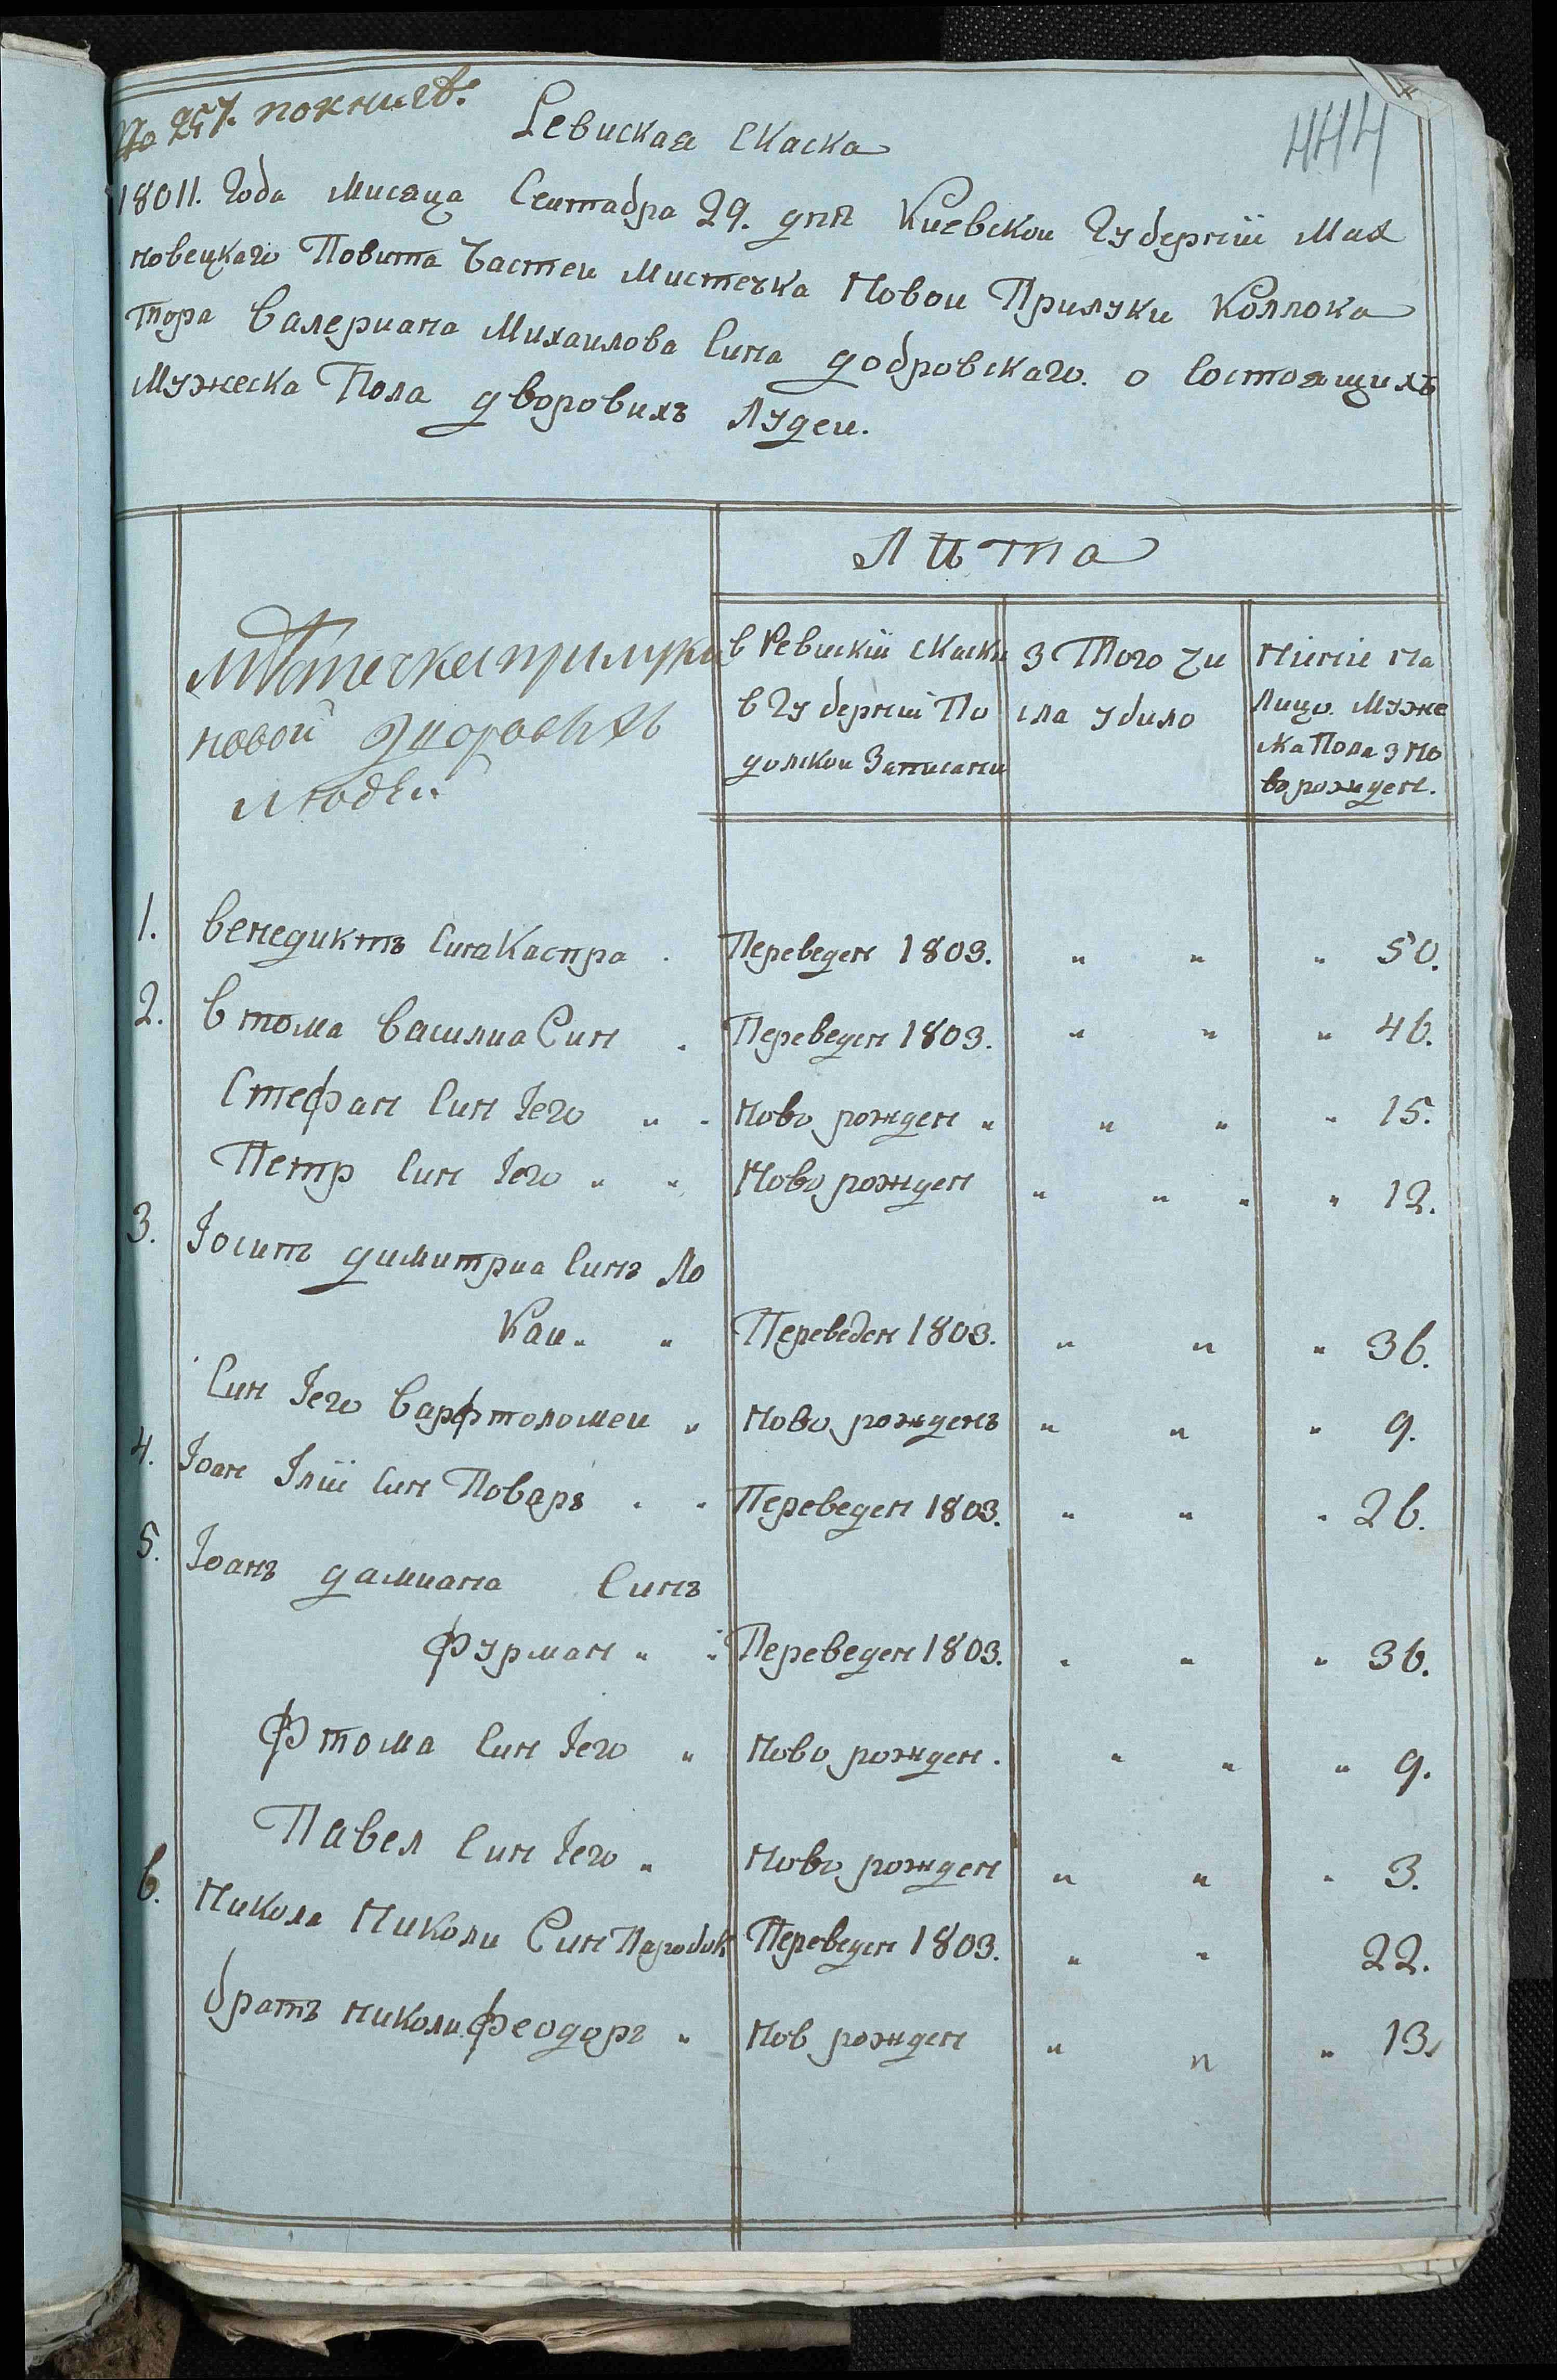 № 257. по книге.
444
Ревиская Скаска
18011. Года Мисяца Сентабра 29. дня Киевскои Губернїи Мах
новецкаго Повита Частеи Мистечка Новои Прилуки Коллока
тора Валериана Михаилова Сина Добровскаго. о Состоящихъ
Мужеска Пола дворовихъ Лудеи.
Лита
Мѣстечка прилуки
новой дворовыхъ
людей
в Ревискїи Скаски
в Губернїи По
долскои Записани
З Того Чи
сла убило
Нинїи На
Лицо. Муже
ска Пола З Но
ворожден.
1. Венедиктъ Сина Каспра . Переведен 1803. " " " 50.
2. Втома Василиа Син . Переведен 1803. " " " 46.
Стефан Син Iего " . Ново рожден " " " " 15.
Петр Син Iего " " Ново рожден " " " " 12.
3. Iосипъ Димитриа Синъ Ло
каи " " Переведен 1803. " " " 36.
Син Iего Варфтоломеи " Ново рожденъ " " " 9.
4. Iоан Iлїи Син Поваръ . . Переведен 1803. " " " 26.
5. Iоанъ Дамиана Синъ
Фурман " " Переведен 1803. " " " 36.
Фтома Син Iего " Ново рожден. " " " 9.
Павел Син Iего " Ново рожден " " " 3.
6. Никола Николи Син Паробок Переведен 1803. " " 22.
братъ Николи Феодоръ " Нов рожден " " " 13.